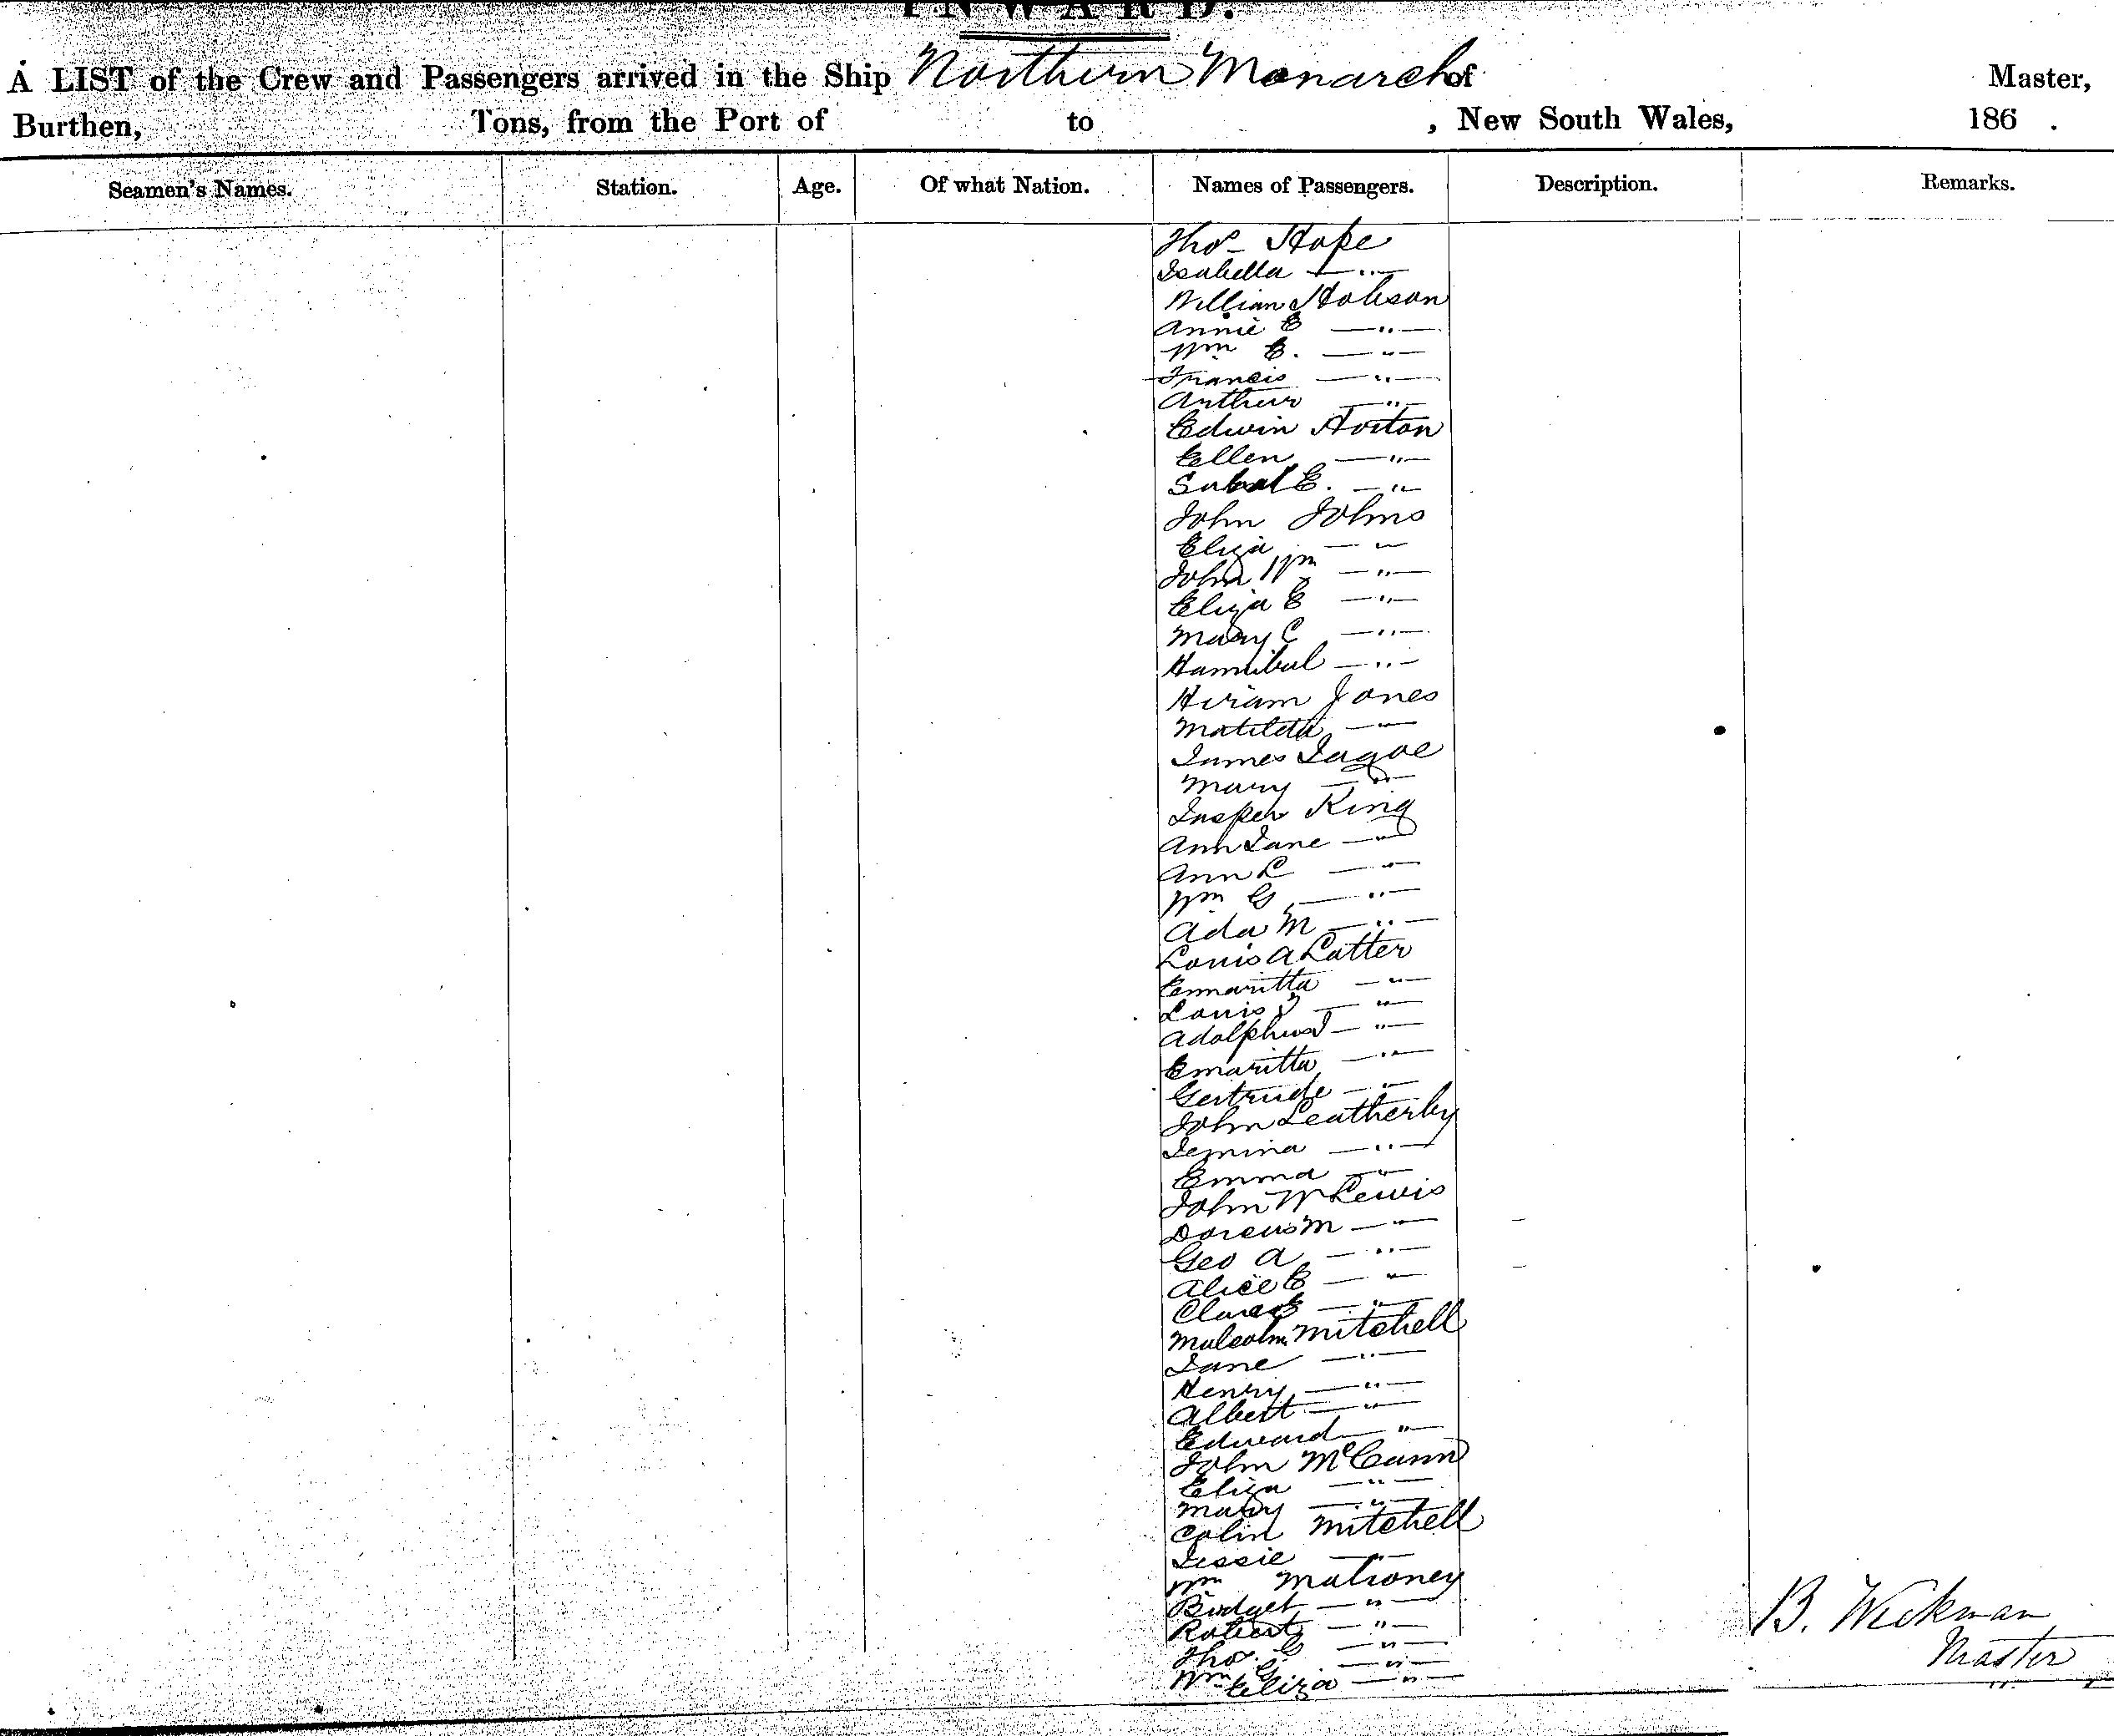 INWARD.
A LIST of the Crew and Passengers arrived in the Ship Northern Monarch of Master,
Burthen, Tons, from the Port of to , New South Wales, 186 .
Seamen's Names. Station. Age. Of what Nation. Names of Passengers. Description. Remarks.
Thos Hope
Isabella — " —
William Hobson
Annie E — " —
Wm E. — " —
Francis — " —
Arthur — " —
Edwin Horton
Ellen — " —
E. — " —
John Johns
Eliza — " —
John Wm — " —
Eliza E — " —
Mary C — " —
Hannibal — " —
Hiram Jones
Matilda — " —
James Jagoe
Mary — " —
Jasper King
Ann Jane — " —
Ann L — " —
Wm G — " —
Ada M — " —
Louis A Latter
Emmaritta — " —
Louis J — " —
Adolphus J — " —
Emaritta — " —
Gertrude — " —
John Leatherby
Jemina — " —
Emma — " —
John W Lewis
Dorcus M — " —
Geo A — " —
Alice E — " —
Clara E — " —
Malcolm Mitchell
Jane — " —
Henry — " —
Albert — " —
Edward — " —
John McCann
Eliza — " —
Mary — " —
Colin Mitchell
Jessie — " —
Wm Mahoney
Bridget — " —
Robert G — " —
Thos. G — " —
Wm G. — " —
Eliza — " —
B. Wickman
Master